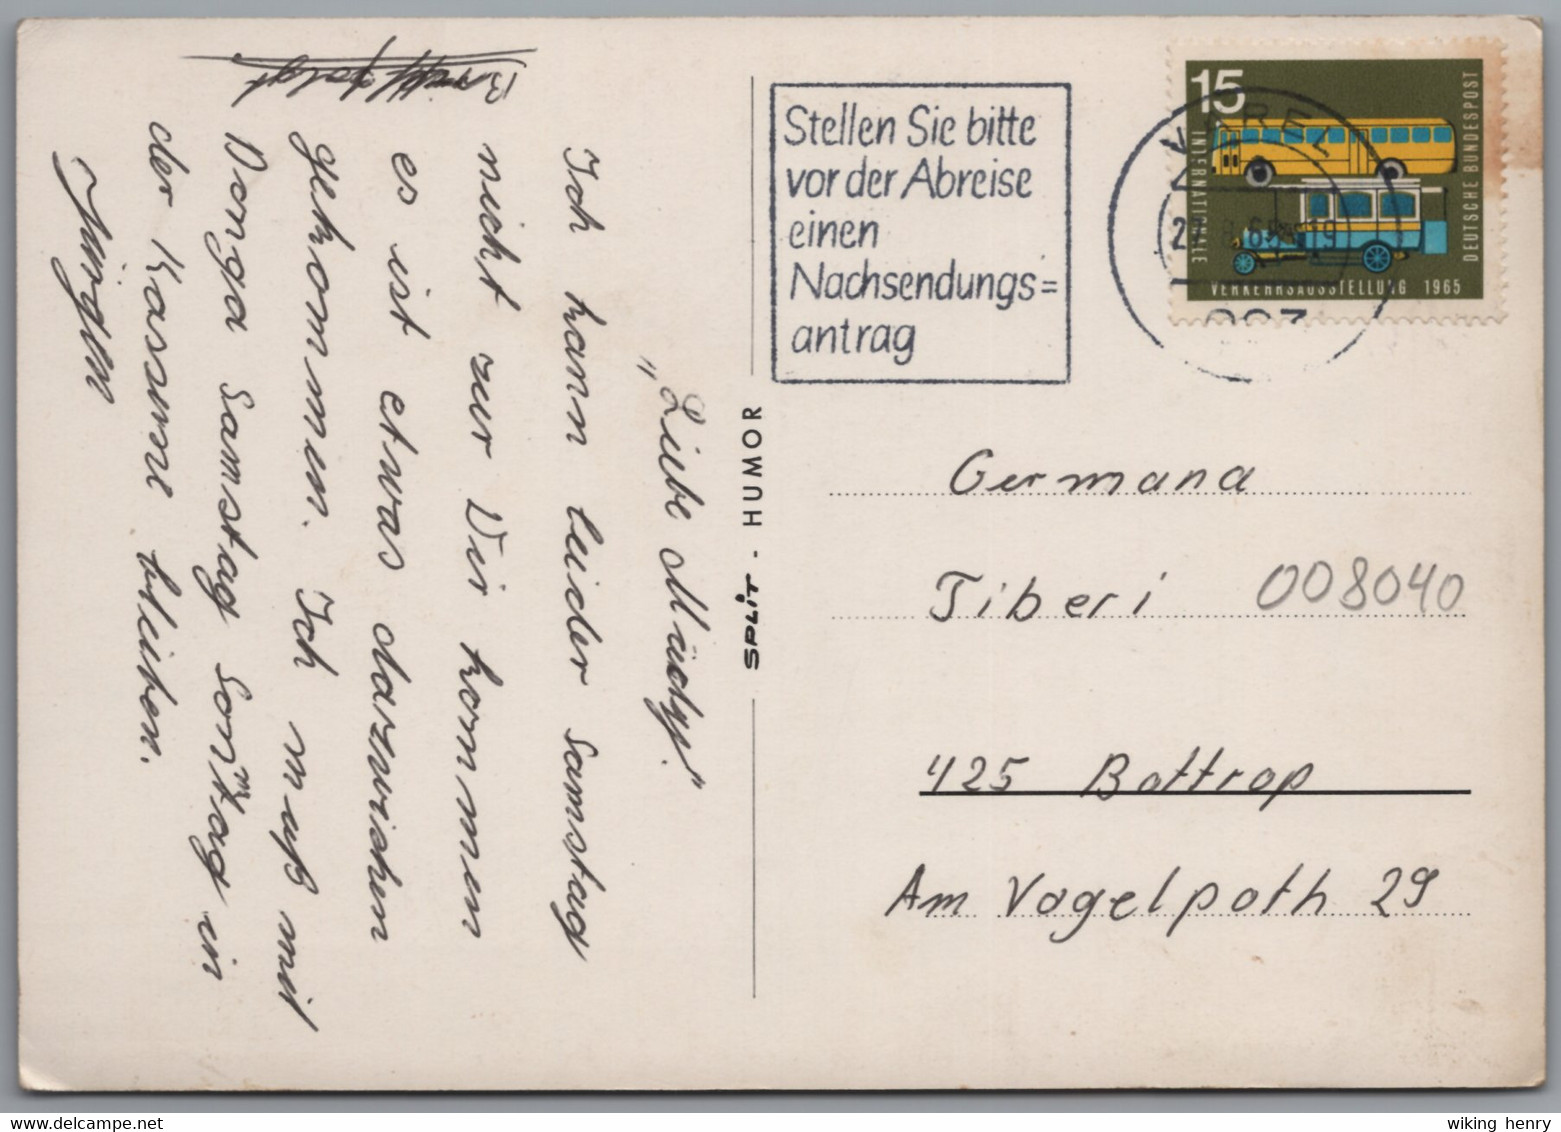 Brief folgt
„Liebe Mädy!"
Ich kann leider Samstag
nicht zur Dir kommen
es ist etwas dazwischen
gekommen. Ich muß mit
Donga Samstag Sonntag in
der Kaserne bleiben.
Jürgen
SPLIT - HUMOR
Stellen Sie bitte
vor der Abreise
einen
Nachsendungs=
antrag
VAREL
27. 8.65 19
15
INTERNATIONALE
VERKEHRSAUSSTELLUNG 1965
DEUTSCHE BUNDESPOST
Germana
Tiberi
008040
425 Bottrop
Am Vogelpoth 29
wiking henry